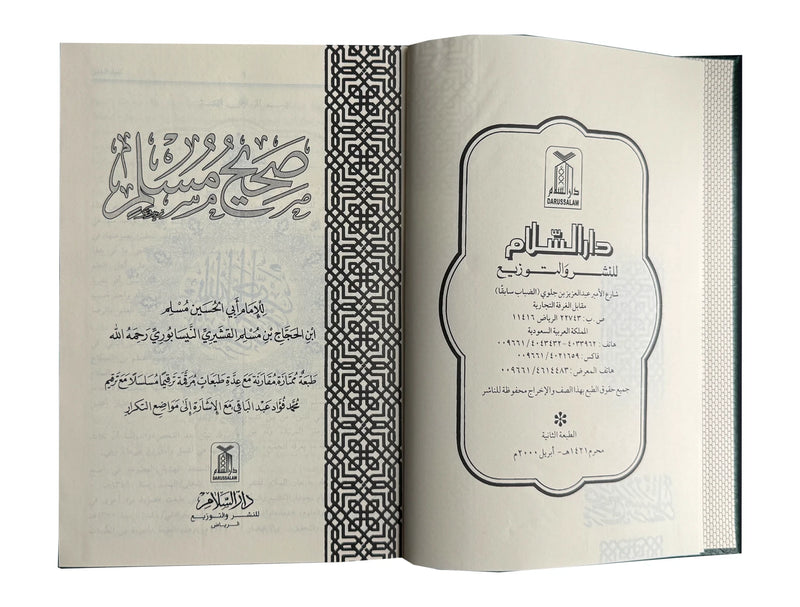 صحيح مسلم
للإمام أبي الحسين مسلم
ابن الحجاج بن مسلم القشيري النيسابوري رحمه الله
طبعة ممتازة مقارنة مع عدة طبعات مرقمة ترقيمًا مسلسلًا مع ترقيم
محمد فؤاد عبد الباقي مع الإشارة إلى مواضع التكرار
دار السلام
DARUSSALAM
دار السلام
للنشر والتوزيع
الرياض
دار السلام
DARUSSALAM
دار السلام
للنشر والتوزيع
شارع الأمير عبدالعزيز بن جلوي (الضباب سابقًا)
مقابل الغرفة التجارية
ص ب: ٢٢٧٤٣ الرياض ١١٤١٦
المملكة العربية السعودية
هاتف: ٤٠٣٣٩٦٢-٠٠٩٦٦١/٤٠٤٣٤٣٢
فاكس: ٠٠٩٦٦١/٤٠٢١٦٥٩
هاتف المعرض: ٠٠٩٦٦١/٤٦١٤٤٨٣
جميع حقوق الطبع بهذا الصف والإخراج محفوظة للناشر
الطبعة الثانية
محرم ١٤٢١هـ- أبريل ٢٠٠٠م